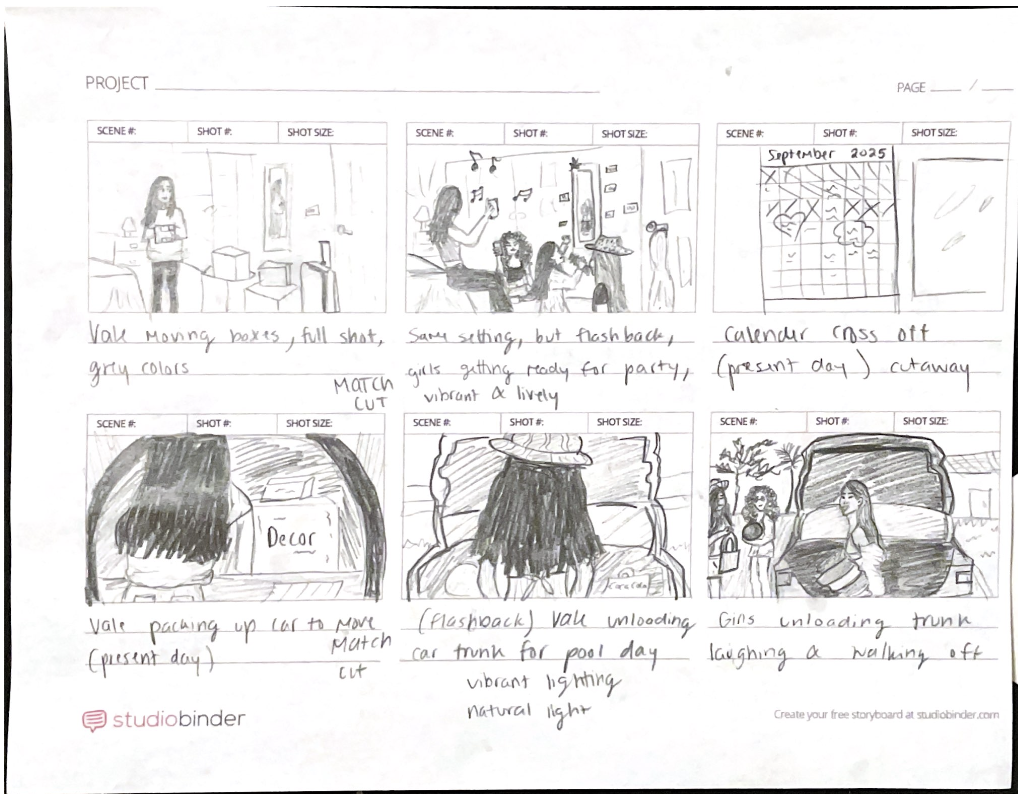 PROJECT
PAGE /
SCENE #: SHOT #: SHOT SIZE:
SCENE #: SHOT #: SHOT SIZE:
SCENE #: SHOT #: SHOT SIZE:
September 2025
Vale moving boxes, full shot,
grey colors
MATCH
CUT
Same setting, but flashback,
girls getting ready for party,
vibrant & lively
Calender cross off
(present day) cutaway
SCENE #: SHOT #: SHOT SIZE:
SCENE #: SHOT #: SHOT SIZE:
SCENE #: SHOT #: SHOT SIZE:
Decor
Vale packing up car to move
(present day)
MATCH
CUT
(flashback) Vale unloading
car trunk for pool day
vibrant lighting
natural light
Girls unloading trunk
laughing & walking off
studiobinder
Create your free storyboard at studiobinder.com